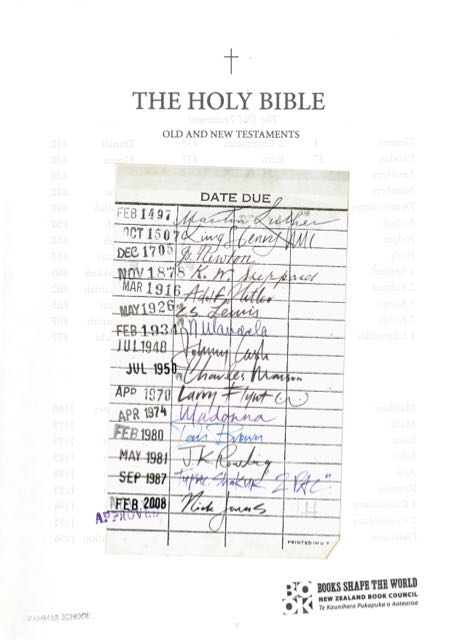 THE HOLY BIBLE
OLD AND NEW TESTAMENTS
DATE DUE
FEB 1497 Martin Luther
OCT 1507 King Henry VIII
DEC 1705 J. Newton
NOV 1878 K W Sheppard
MAR 1916 Adolf Hitler
MAY 1926 CS Lewis
FEB 1934 N Mandela
JUL 1948 Johnny Cash
JUL 1950 Charles Manson
APR 1970 Larry Flynt
APR 1974 Madonna
FEB 1980 Dan Brown
MAY 1981 J.K Rowling
SEP 1987 Tupac Shakur "2 PAC"
FEB 2008 Nick Jonas
APPROVED
PRINTED IN U.
BOOK
BOOKS SHAPE THE WORLD
NEW ZEALAND BOOK COUNCIL
Te Kaunihera Pukapuka o Aotearoa
GRAMMAR SCHOOL